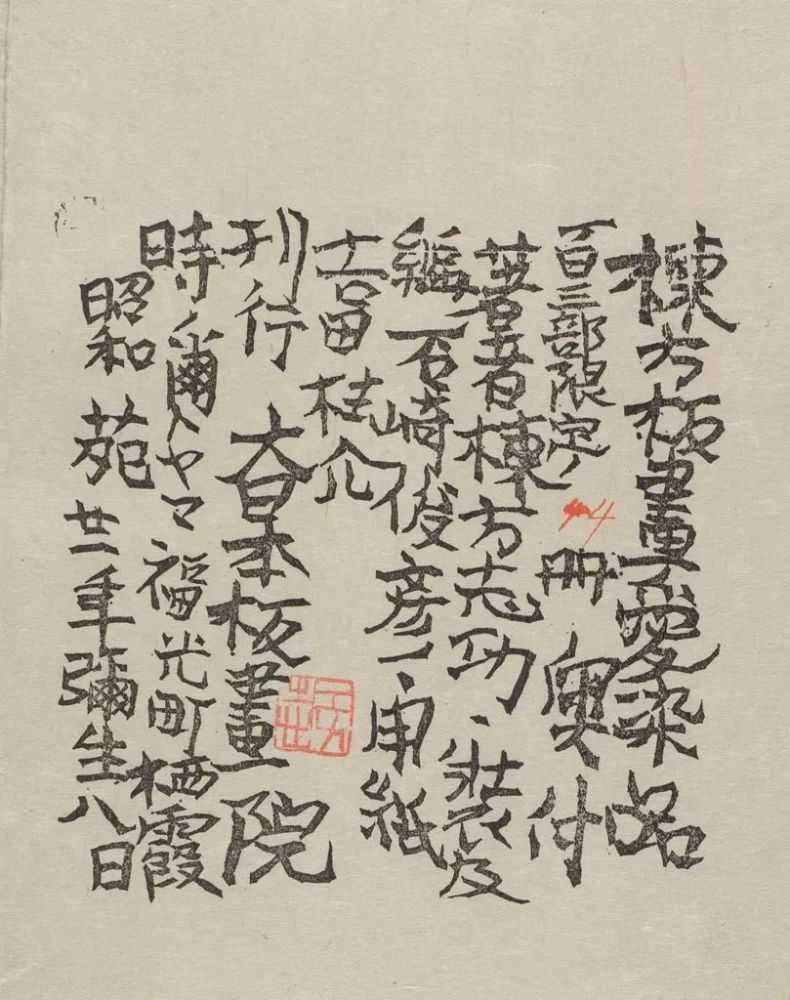 棟方板畫愛染品
一百三部限定ノ 4 冊 奥付
著者棟方志功、装及
編、石崎俊彦一、用紙
吉田桂介
刊行 大日本板畫院
時ノ爾トヤマ福光町栖霞
昭和苑廿一年彌生八日